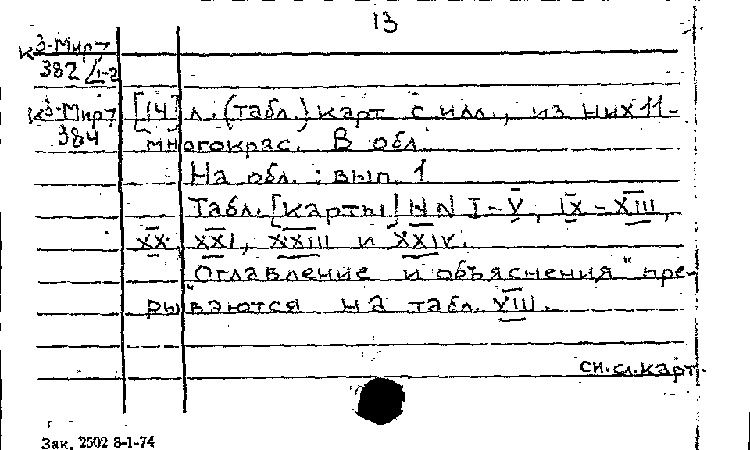 13
К3-Мир7
382/1-2
К3-Мир7
384
[14] л. (табл.) карт с илл., из них 11-
многокрас. В обл.
На обл.: вып. 1
Табл. [карты] NN I-V, IX-XIII,
XX, XXI, XXIII и XXIV.
"Оглавление и объяснения" пре-
рываются на табл. VIII.
см.сл.карт.
Зак. 2502 8-1-74